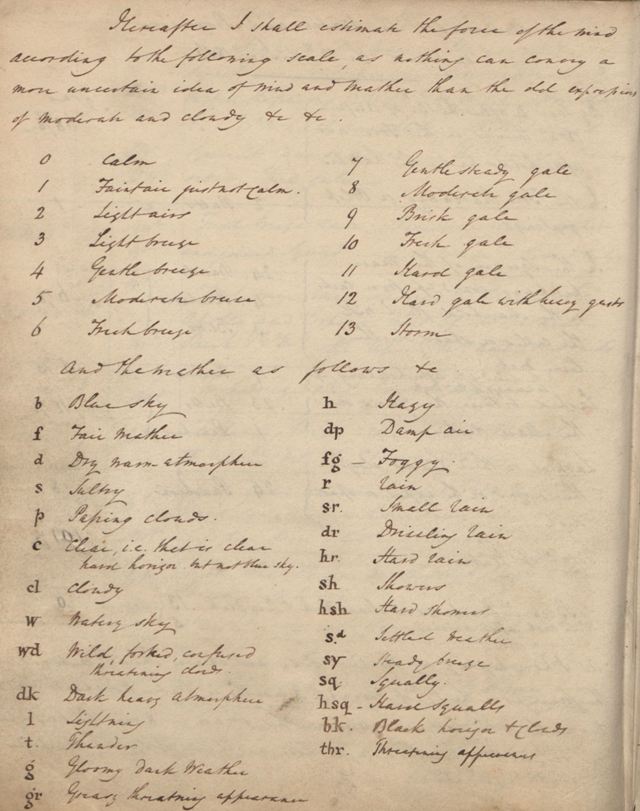 Hereafter I shall estimate the force of the wind
according to the following scale, as nothing can convey a
more uncertain idea of wind and weather than the old expressions
of moderate and cloudy &c &c.
0 Calm
1 Faint air just not calm.
2 Light airs
3 Light breeze
4 Gentle breeze
5 Moderate breeze
6 Fresh breeze
7 Gentle steady gale
8 Moderate gale
9 Brisk gale
10 Fresh gale
11 Hard gale
12 Hard gale with heavy gusts
13 Storm
And the weather as follows &c
b Blue sky
f Fair weather
d Dry warm atmosphere
s Sultry
p Passing clouds.
c Clear, i.e. that is clear
hard horizon but not blue sky.
cl Cloudy
w Watery sky
wd Wild, forked, confused
threatening clouds.
dk Dark heavy atmosphere
l Lightning
t. Thunder
g Gloomy dark weather
gr Greasy threatning appearance
h Hazy
dp Damp air
fg – Foggy.
r rain
sr. Small rain
dr Drizzling rain
hr. Hard rain
sh Showers
hsh Hard showers
sd Settled weather
sy Steady breeze
sq Squally.
hsq - Hard squalls
bk. Black horizon & clouds
thr. Threatning appearance